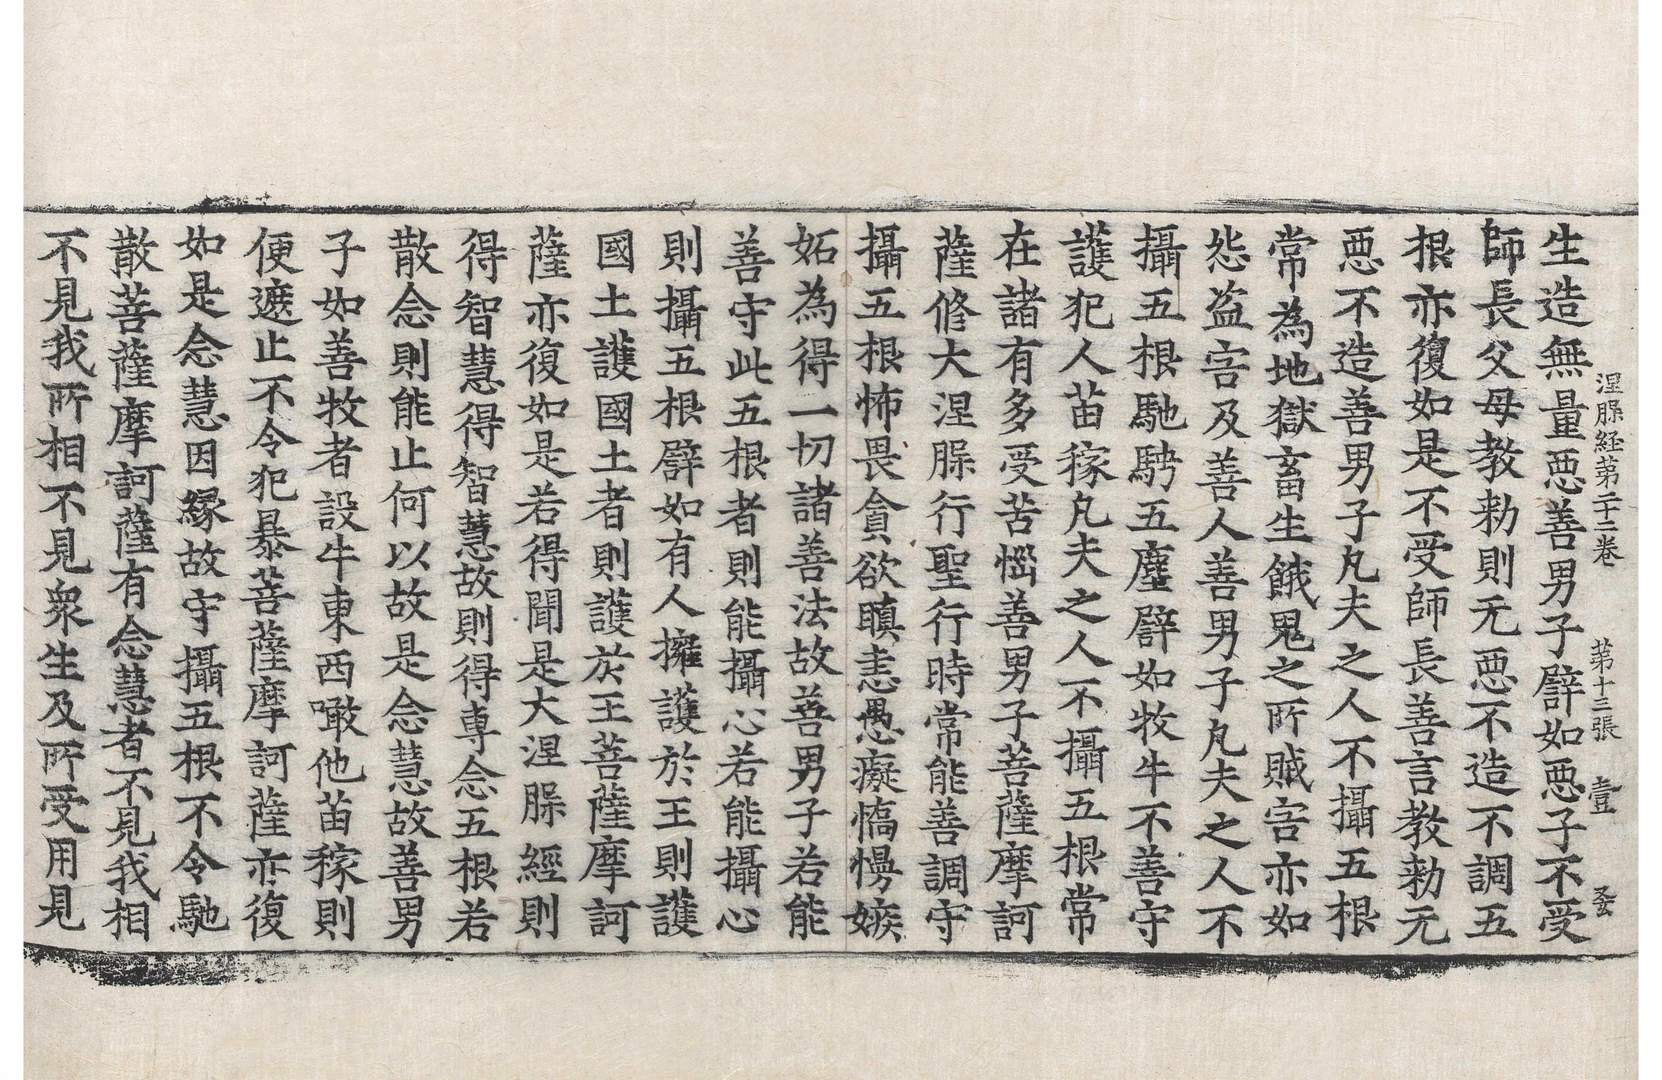 涅槃経第二十二巻　第十三張　壹
生造無量惡善男子譬如惡子不受
師長父母教勑則无惡不造不調五
根亦復如是不受師長善言教勑无
惡不造善男子凡夫之人不攝五根
常為地獄畜生餓鬼之所賊害亦如
怨盗害及善人善男子凡夫之人不
攝五根馳騁五塵譬如牧牛不善守
護犯人苗稼凡夫之人不攝五根常
在諸有多受苦惱善男子菩薩摩訶
薩修大涅槃行聖行時常能善調守
攝五根怖畏貪欲瞋恚愚癡憍慢嫉
妬為得一切諸善法故善男子若能
善守此五根者則能攝心若能攝心
則攝五根譬如有人擁護於王則護
國土護國土者則護於王菩薩摩訶
薩亦復如是若得聞是大涅槃經則
得智慧得智慧故則得専念五根若
散念則能止何以故是念慧故善男
子如善牧者設牛東西噉他苗稼則
便遮止不令犯暴菩薩摩訶薩亦復
如是念慧因縁故守攝五根不令馳
散菩薩摩訶薩有念慧者不見我相
不見我所相不見衆生及所受用見